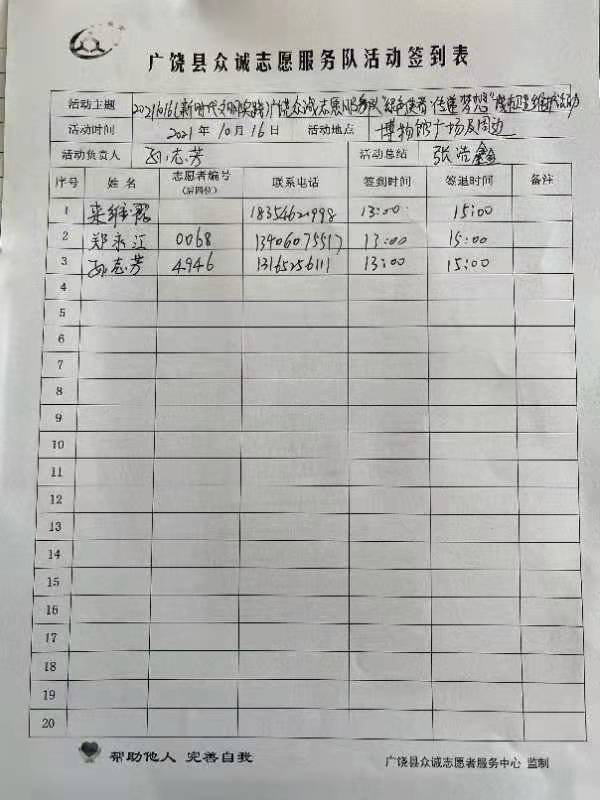 广饶县众诚志愿服务队活动签到表
活动主题 20211016(新时代文明实践)广饶众诚志愿服务队"绿色使者·传递梦想"
活动时间 2021年10月16日 活动地点 博物馆广场及周边
活动负责人 孙志芳 活动总结 张浩鑫
序号 姓名 志愿者编号(后四位) 联系电话 签到时间 签退时间 备注
1 18354621998 13:00 15:00
2 郑永江 0068 13406075517 13:00 15:00
3 孙志芳 4946 13165256111 13:00 15:00
4
5
6
7
8
9
10
11
12
13
14
15
16
17
18
19
20
帮助他人 完善自我 广饶县众诚志愿者服务中心 监制